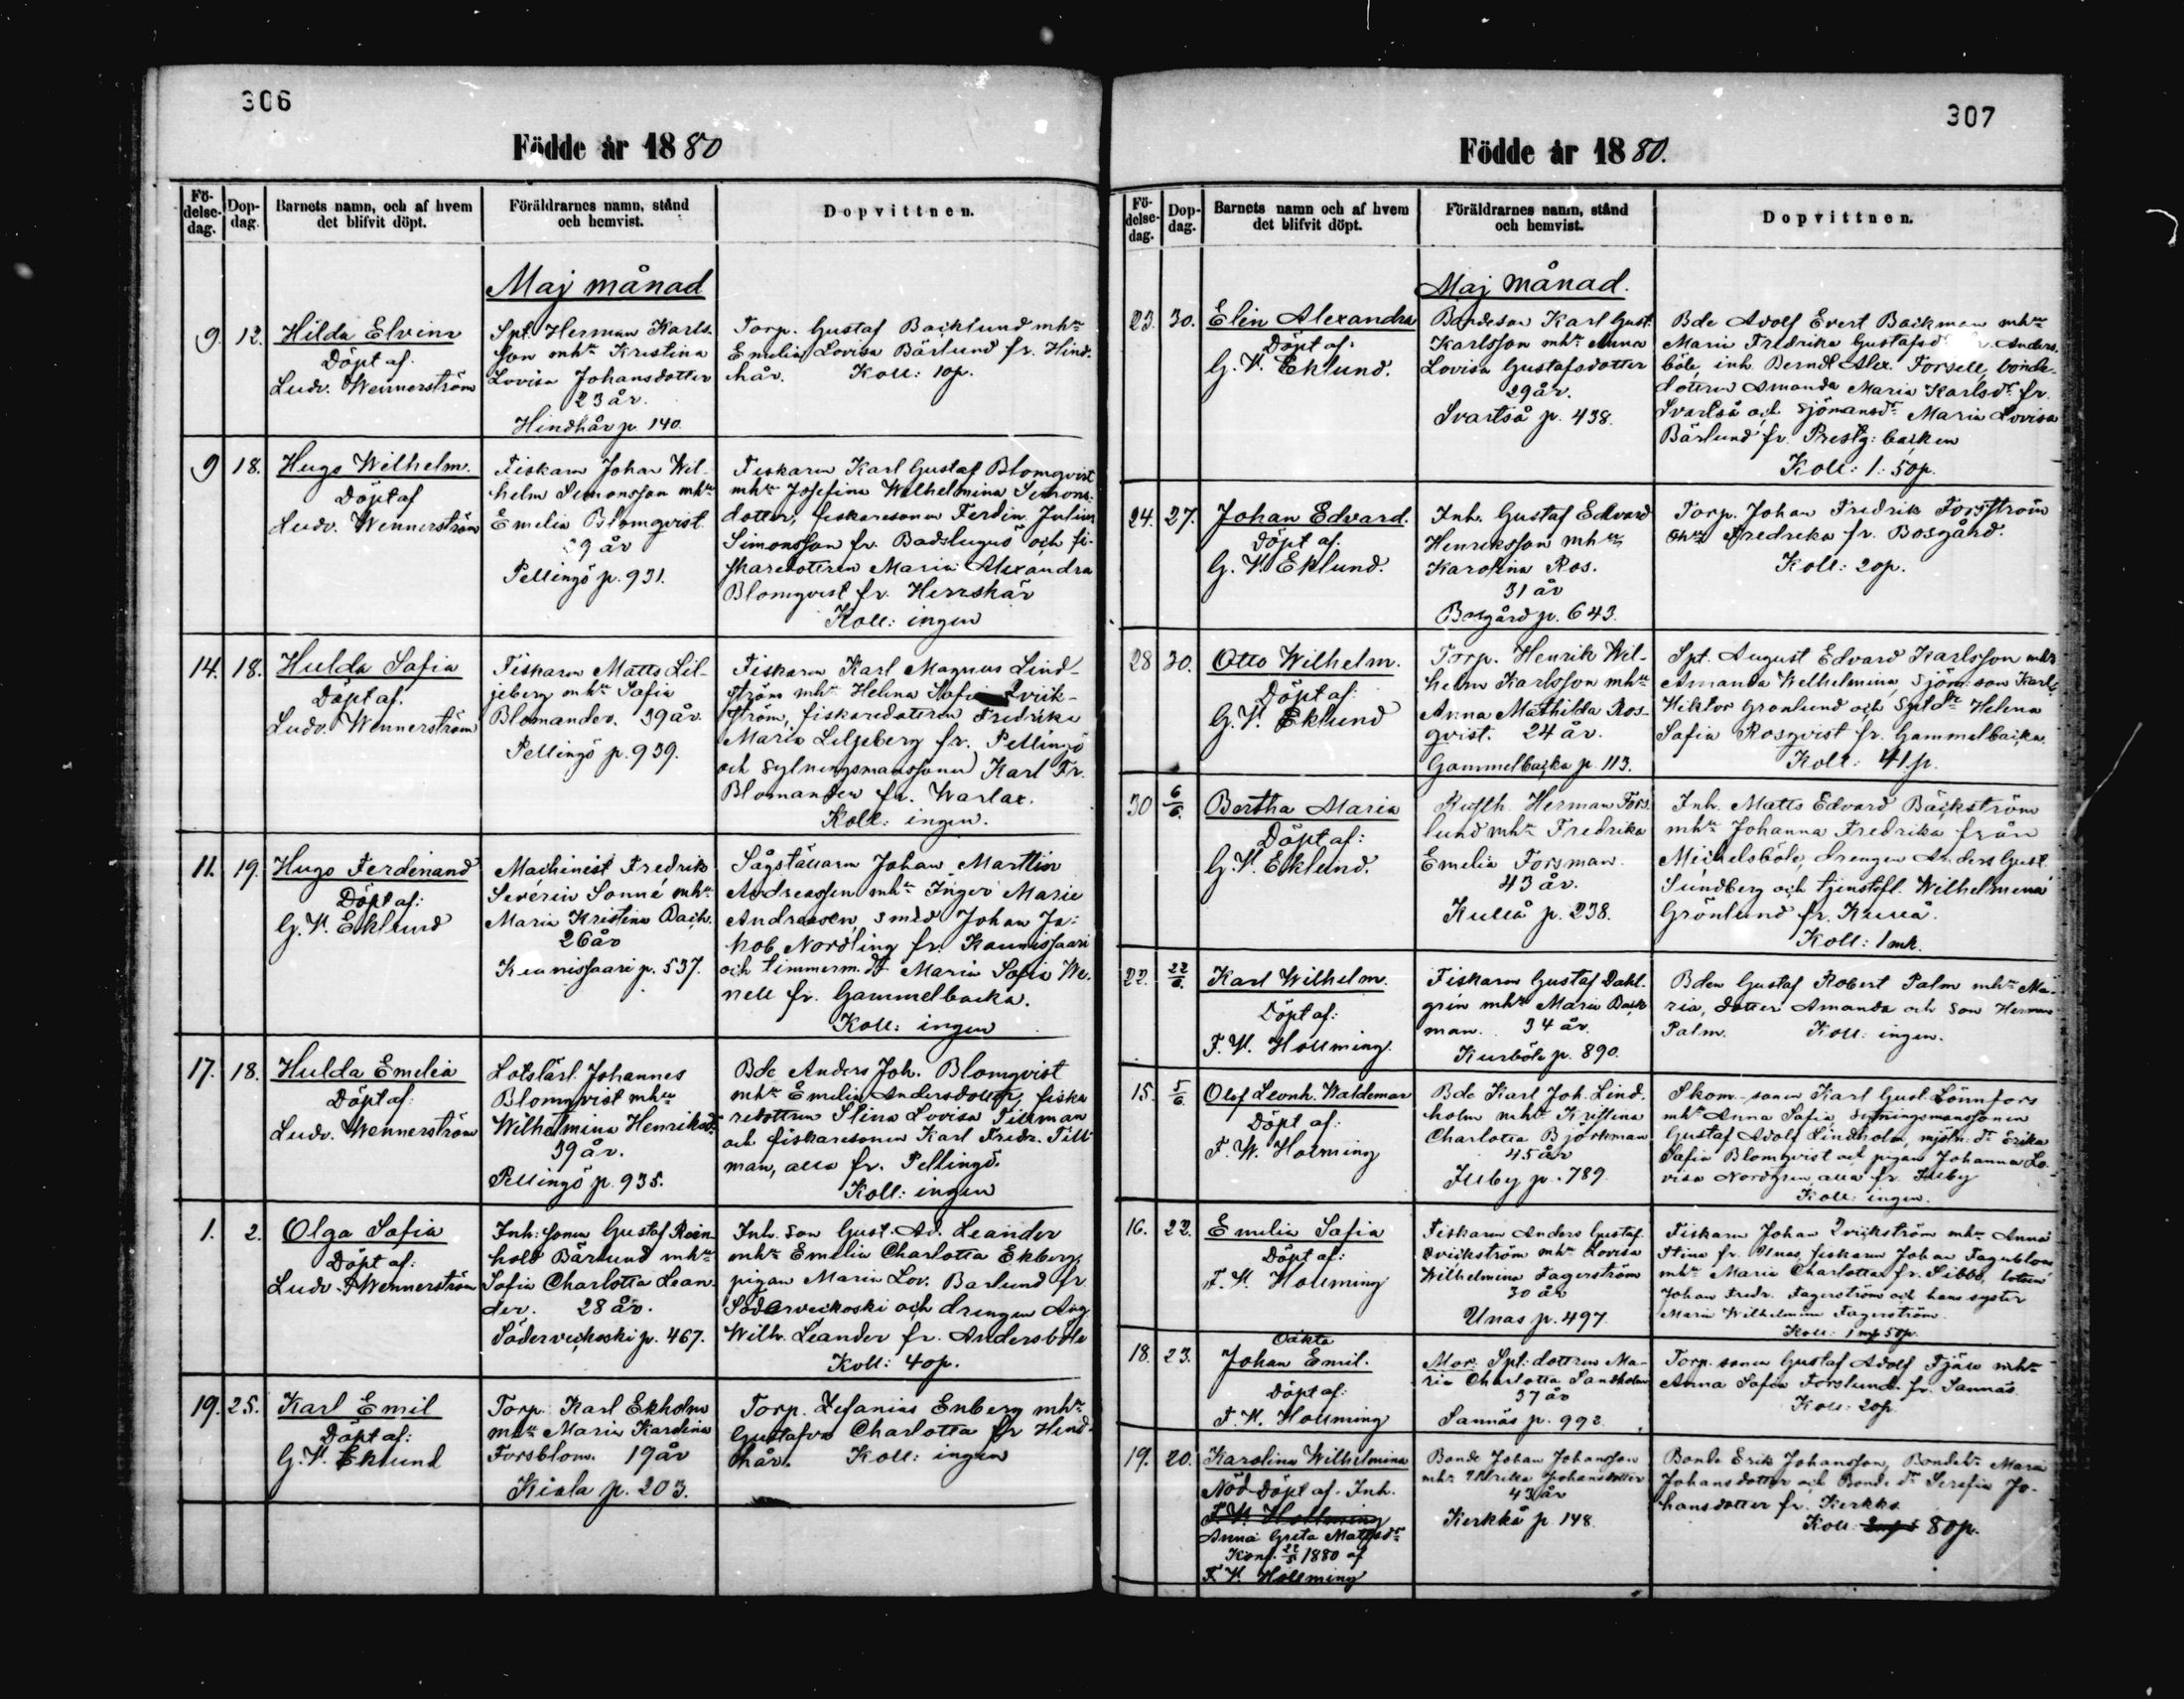 306
Födde år 1880
Födelsedag.
Dopdag.
Barnets namn, och af hvem det blifvit döpt.
Föräldrarnes namn, stånd och hemvist.
Dopvittnen.
Maj månad
9. 12. Hilda Elvira
Döpt af.
Ludv. Wennerström
Spt. Herman Karls-
son mhu Kristina
Lovisa Johansdotter
23 år.
Hindhår p. 140.
Torp. Gustaf Backlund mhu
Emelia Lovisa Bärlund fr. Hind-
hår. Koll: 10p.
9 18. Hugo Wilhelm.
Döpt af
Ludv. Wennerström
Fiskaren Johan Wil-
helm Simonsson mhu
Emelia Blomqvist
39 år
Pellingö p. 931.
Fiskaren Karl Gustaf Blomqvist
mhu Josefina Wilhelmina Simons-
dotter, fiskaresonen Ferdin. Julius
Simonsson fr. och fi-
skaredottren Maria Alexandra
Blomqvist fr. Herrskär
Koll: ingen
14. 18. Hulda Sofia
Döpt af.
Ludv. Wennerström
Fiskaren Matts Lil-
jeberg mhu Sofia
Blomander. 39 år.
Pellingö p. 939.
Fiskaren Karl Magnus Lind-
ström mhu Helena Sofia Qvick-
ström, fiskaredottren Fredrika
Maria Liljeberg fr. Pellingö
och sytningsmanssonen Karl Fr.
Blomander fr. Warlax.
Koll: ingen.
11. 19. Hugo Ferdinand
Döpt af:
G. V. Eklund
Machinist Fredrik
Severin Sonné mhu
Maria Kristina Bach.
26 år
Kaunissaari p. 537.
Sågställaren Johan Marttin
Andreassen mhu Inger Marie
Andreasen, smed Johan Ja-
kob Nordling fr. Kaunissaari
och timmerm. dtr Maria Sofia We-
nell fr. Gammelbacka.
Koll: ingen
17. 18. Hulda Emelia
Döpt af:
Ludv. Wennerström
Lotslärl. Johannes
Blomqvist mhu
Wilhelmina Henriksdr
39 år.
Pellingö p. 935.
Bde Anders Joh. Blomqvist
mhu Emelia Andersdotter, fiska-
redottren Stina Lovisa Tillman
och fiskaresonen Karl Fredr. Till-
man, alla fr. Pellingö.
Koll: ingen
1. 2. Olga Sofia
Döpt af:
Ludv. Wennerström
Inh: sonen Gustaf Rein-
hold Bärlund mhu
Sofia Charlotta Lean-
der. 28 år.
Söderveckoski p. 467.
Inh. son Gust. Ad. Leander
mhu Emelia Charlotta Ekberg,
pigan Maria Lov. Barlund fr.
Söderveckoski och drengen Aug.
Wilh. Leander fr. Andersböle
Koll: 40p.
19. 25. Karl Emil
Döpt af:
G. V. Eklund
Torp. Karl Ekholm
mhu Maria Karolina
Forsblom. 19 år
Kiala p. 203.
Torp. Zefanias Enberg mhu
Gustafva Charlotta fr Hind-
hår. Koll: ingen
307
Födde år 1880.
Födelsedag.
Dopdag.
Barnets namn och af hvem det blifvit döpt.
Föräldrarnes namn, stånd och hemvist.
Dopvittnen.
Maj månad.
23. 30. Elin Alexandra
Döpt af:
G. V. Eklund.
Bondeson Karl Gust.
Karlsson mhu Anna
Lovisa Gustafsdotter
29 år.
Svartså p. 438.
Bde Adolf Evert Backman mhu
Maria Fredrika Gustafsd. Anders-
böle, inh. Berndt Alex. Forsell, bonde-
dottren Amanda Maria Karlsdr fr.
Svartså och sjömansdr Maria Lovisa
Bärlund fr. Prestg: backen
Koll: 1: 50p.
24. 27. Johan Edvard.
Döpt af.
G. V. Eklund.
Inh. Gustaf Edvard
Henriksson mhu
Karolina Ros.
31 år
Bosgård p. 643.
Torp. Johan Fredrik Forsström
mhu Fredrika fr. Bosgård.
Koll: 20p.
28 30. Otto Wilhelm.
Döpt af:
G. V. Eklund
Torp. Henrik Wil-
helm Karlsson mhu
Anna Mathilda Ros-
qvist. 24 år.
Gammelbacka p. 113.
Spt. August Edvard Karlsson mhu
Amanda Wilhelmina, sjöm: son Karl
Hiktor Gronlund och Sptdr Helena
Sofia Rosqvist fr. Gammelbacka.
Koll: 41 p.
30 6/6. Bertha Maria
Döpt af:
G. V. Eklund.
Herman Fors-
lund mhu Fredrika
Emelia Forsman.
43 år.
Kullå p. 238.
Inh. Matts Edvard Bäckström
mhu Johanna Fredrika från
Mickelsböle, drengen Anders Gust.
Sundberg och tjenstefl. Wilhelmina
Grönlund fr. Kullå.
Koll: 1 mk.
22. 22/6. Karl Wilhelm.
Döpt af:
F. V. Hollming.
Fiskaren Gustaf Dahl-
grén mhu Maria Back-
man. 34 år.
Kurböle p. 890.
Bden Gustaf Robert Palm mhu Ma-
ria, dotter Amanda och son Herman
Palm. Koll: ingen.
15. 5/6. Olof Leonh. Waldemar
Döpt af:
F. W. Holming
Bde Karl Joh. Lind-
holm mhu Kristina
Charlotta Björkman
45 år
Illby p. 789.
Skom.-sonen Karl Gust. Lönnfors
mhu Anna Sofia, sytningsmanssonen
Gustaf Adolf Lindholm, mjöln: dr Erika
Sofia Blomqvist och pigan Johanna Lo-
visa Nordgren, alla fr. Illby
Koll: ingen.
16. 22. Emilia Sofia
Döpt af:
F. V. Hollming
Fiskaren Anders Gustaf
Qvickström mhu Lovisa
Wilhelmina Fagerström
30 år
Unas p. 497.
Fiskaren Johan Qvickström mhu Anna
Stina fr. Unas, fiskaren Johan Tagublom
mhu Maria Charlotta fr. Sibbo, lotsen
Johan Fredr. Fagerström och hans syster
Maria Wilhelmina Fagerström.
Koll: 1 mk 50p.
18. 23. Oäkta
Johan Emil.
Döpt af:
F. V. Hollming
Mor: Spt: dottren Ma-
ria Charlotta Sandholm
37 år
Sannäs p. 992.
Torp. sonen Gustaf Adolf Tjäw mhu
Anna Sofia Forslund. fr. Sannäs.
Koll: 20p.
19. 20. Karolina Wilhelmina
Nöd Döpt af. Inh.
F. V. Hollming
Anna Greta Mattsdr
Konf. 22/5 1880 af
F. V. Hollming
Bonde Johan Johansson
mhu Ulrika Johansdotter
43 år
Kerkkå p 148.
Bonde Erik Johansson, Bondedr Maria
Johansdotter och Bonde dr Serafia Jo-
hansdotter fr. Kerkko
Koll: 80p.